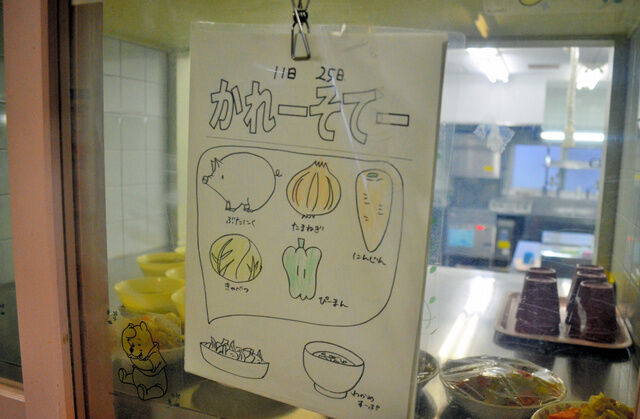 11日 25日
かれーそてー
ぶたにく
たまねぎ
にんじん
きゃべつ
ぴーまん
わかめ
すーぷ